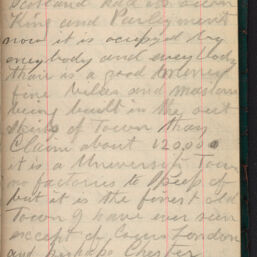 Scotland had its own
King and Parlyment
now it is occupied by
enybody and evrybody
thair is a good
fine and
being built in the out
of Town thay
Claim about 120,000
it is a University Town
no factories to Speek of
but it is the finest old
Town I have ever seen
except of London
and perhaps Chester